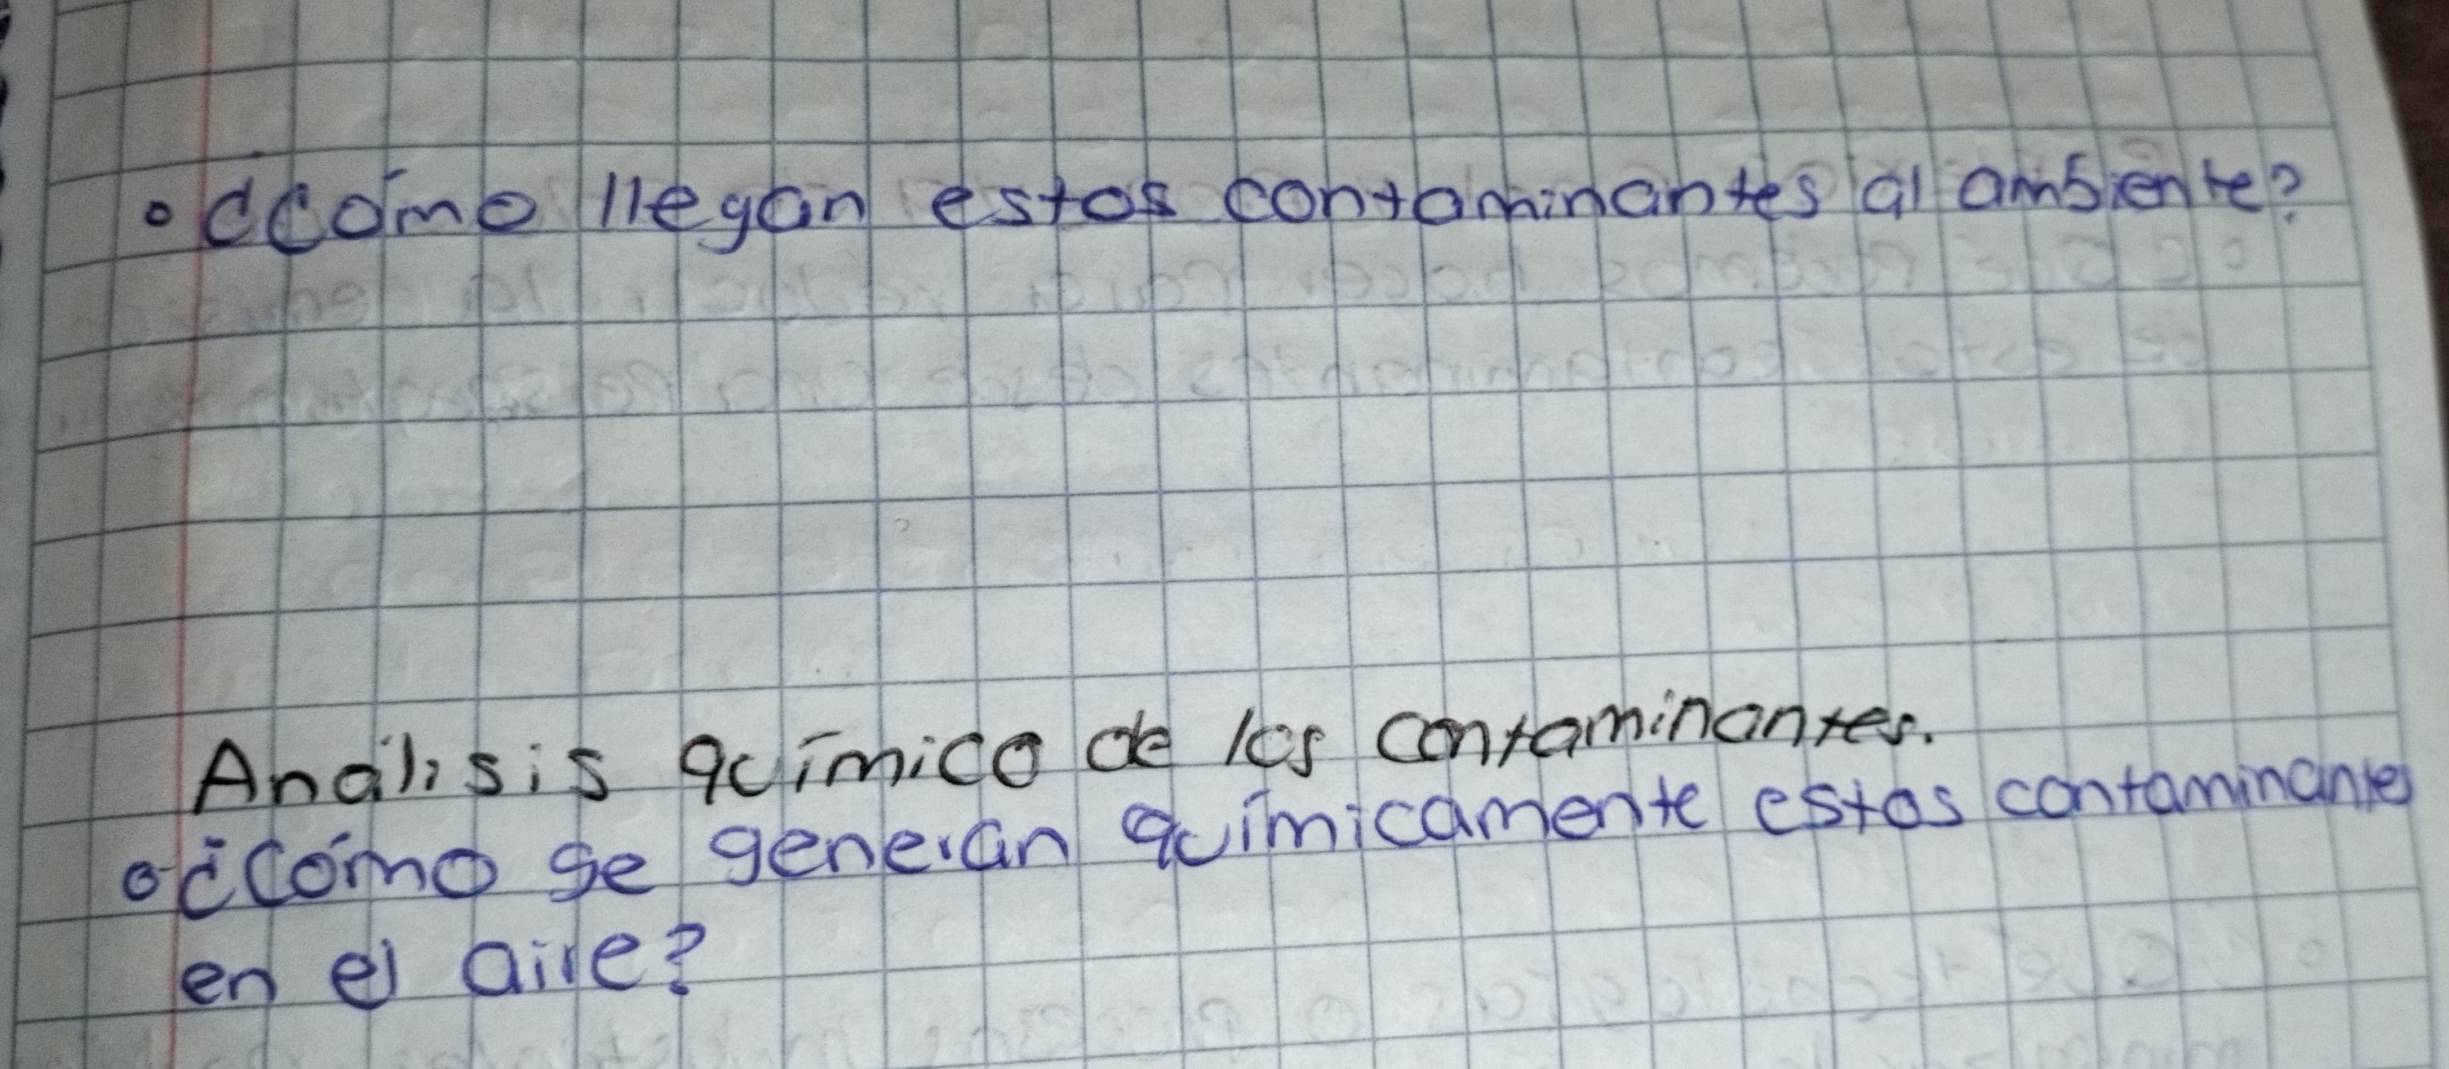 ¿Cómo llegan estos contaminantes al ambiente?
Análisis químico de los contaminantes.
¿Cómo se generan químicamente estos contaminantes
en el aire?